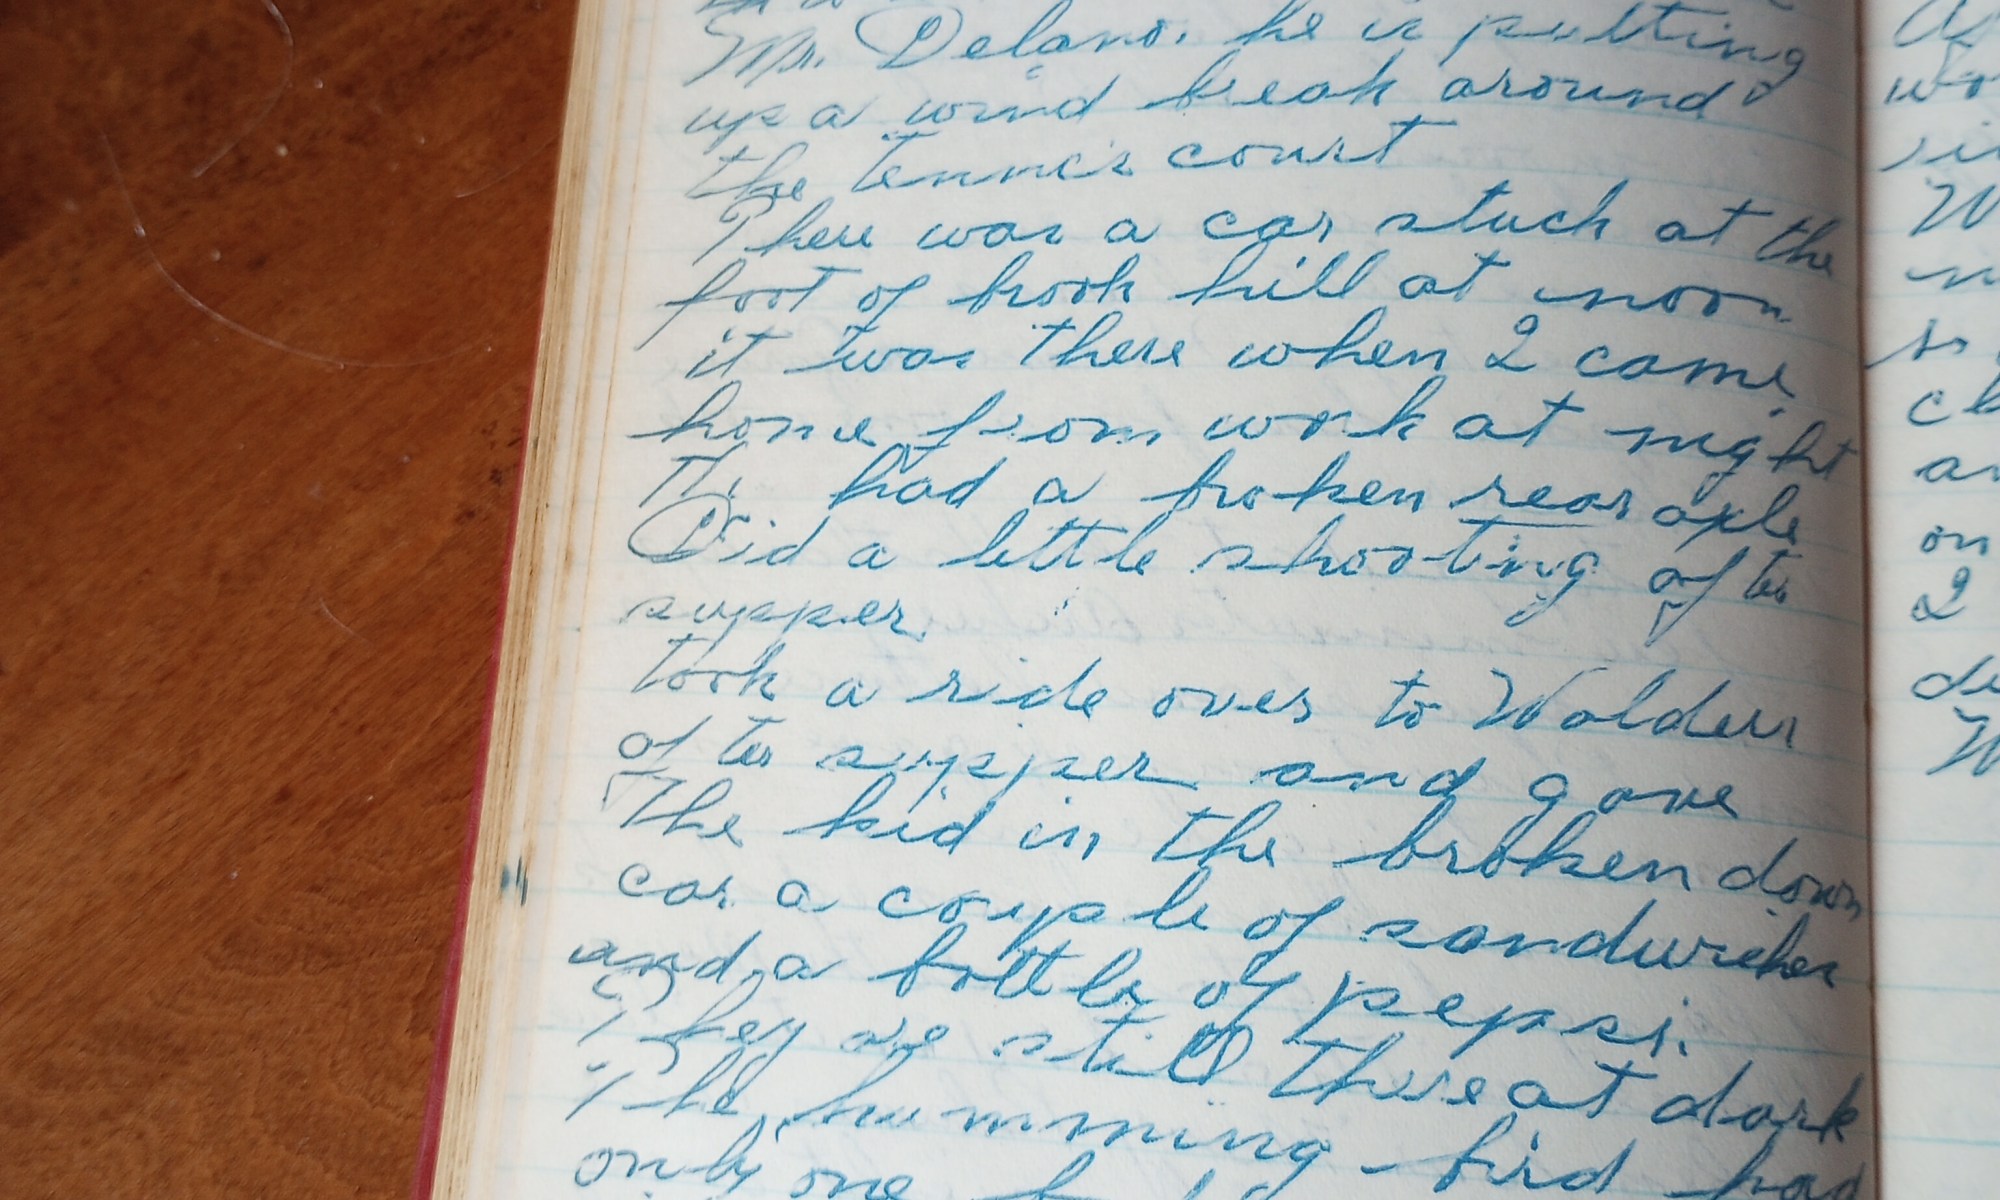 Mr. Delano. he is putting
up a wind break around
the tennis court
There was a car stuck at the
foot of brook hill at noon
it was there when I came
home from work at night
had a broken rear axle
Did a little shooting after
supper.
took a ride over to Walden
after supper and gave
The kid in the broken down
car a couple of sandwiches
and a bottle of pepsi.
They are still there at dark
The humming bird had
only one